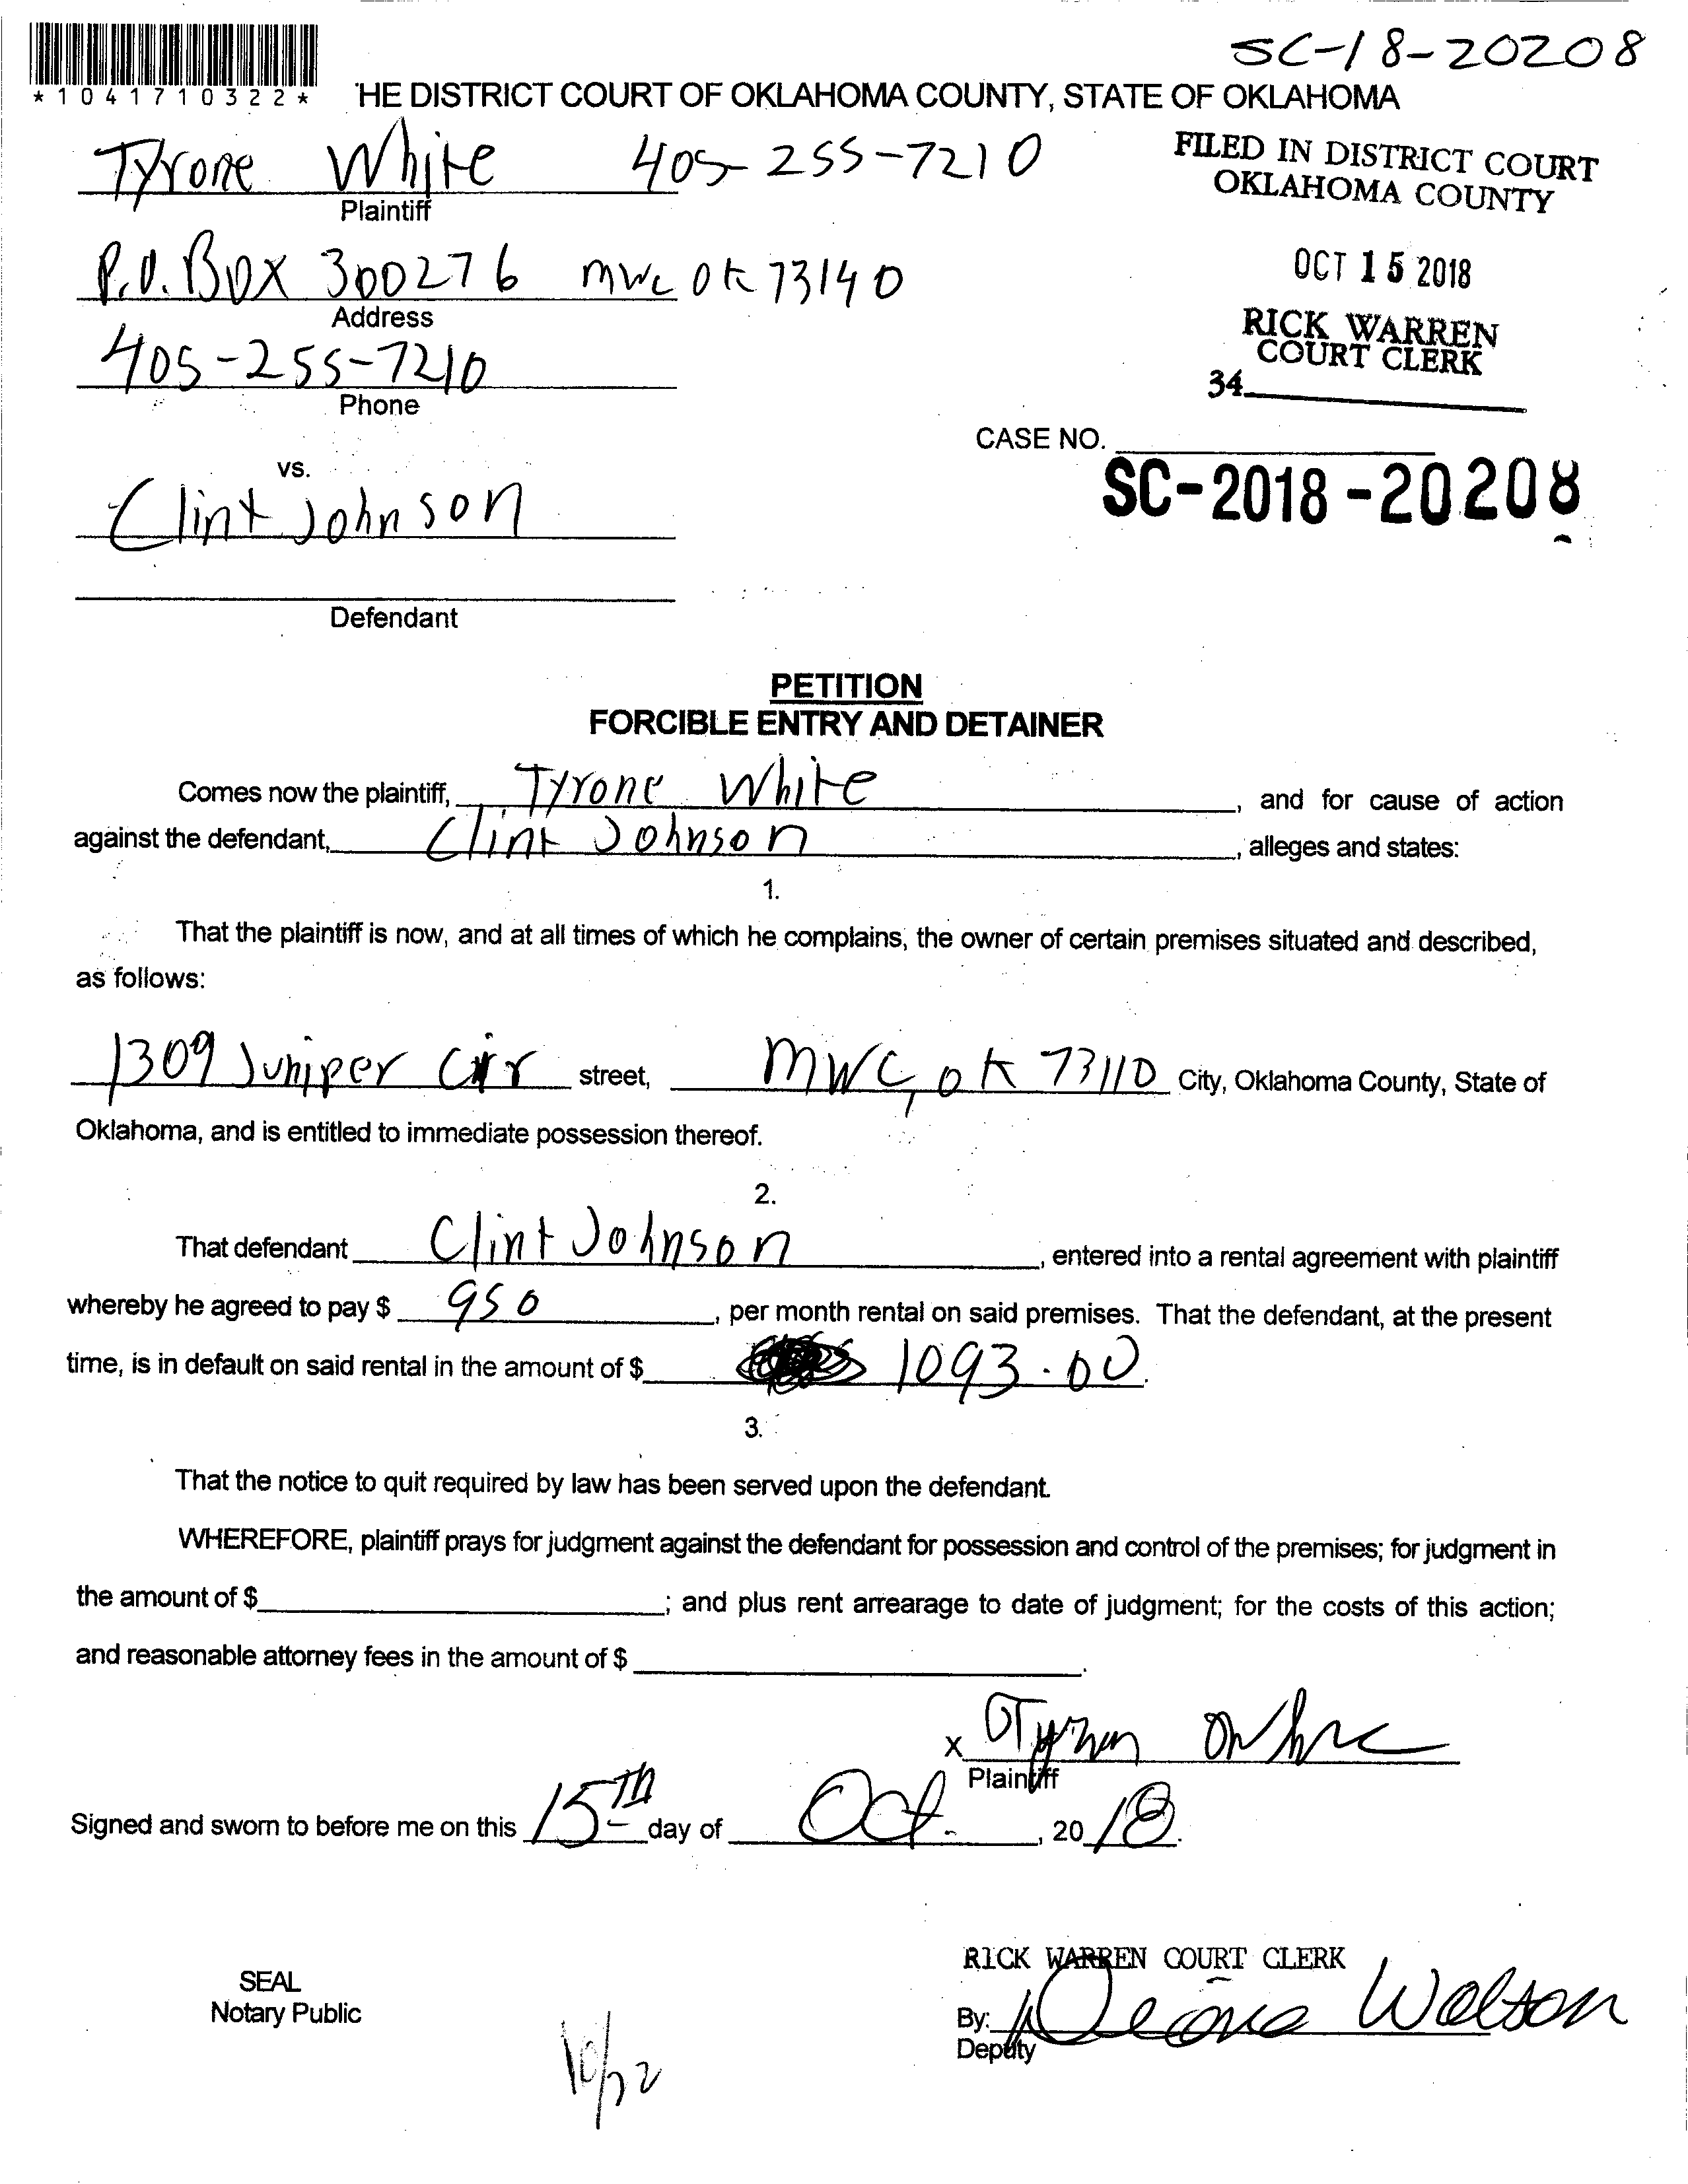 SC-18-20208
*1041710322*
'HE DISTRICT COURT OF OKLAHOMA COUNTY, STATE OF OKLAHOMA
Tyrone White 405-255-7210
Plaintiff
P.O. Box 300276 MWC OK 73140
Address
405-255-7210
Phone
FILED IN DISTRICT COURT
OKLAHOMA COUNTY
OCT 15 2018
RICK WARREN
COURT CLERK
34
CASE NO.
SC-2018-20208
vs.
Clint Johnson
Defendant
PETITION
FORCIBLE ENTRY AND DETAINER
Comes now the plaintiff, Tyrone White, and for cause of action
against the defendant, Clint Johnson, alleges and states:
1.
That the plaintiff is now, and at all times of which he complains, the owner of certain premises situated and described,
as follows:
1309 Juniper Cir street, MWC, OK 73110 City, Oklahoma County, State of
Oklahoma, and is entitled to immediate possession thereof.
2.
That defendant Clint Johnson, entered into a rental agreement with plaintiff
whereby he agreed to pay $ 950, per month rental on said premises. That the defendant, at the present
time, is in default on said rental in the amount of $ 1093.00.
3.
That the notice to quit required by law has been served upon the defendant.
WHEREFORE, plaintiff prays for judgment against the defendant for possession and control of the premises; for judgment in
the amount of $ ; and plus rent arrearage to date of judgment; for the costs of this action;
and reasonable attorney fees in the amount of $ .
x Tyrone White
Plaintiff
Signed and sworn to before me on this 15TH day of Oct., 2018.
SEAL
Notary Public
RICK WARREN COURT CLERK
By: Watson
Deputy
10/22